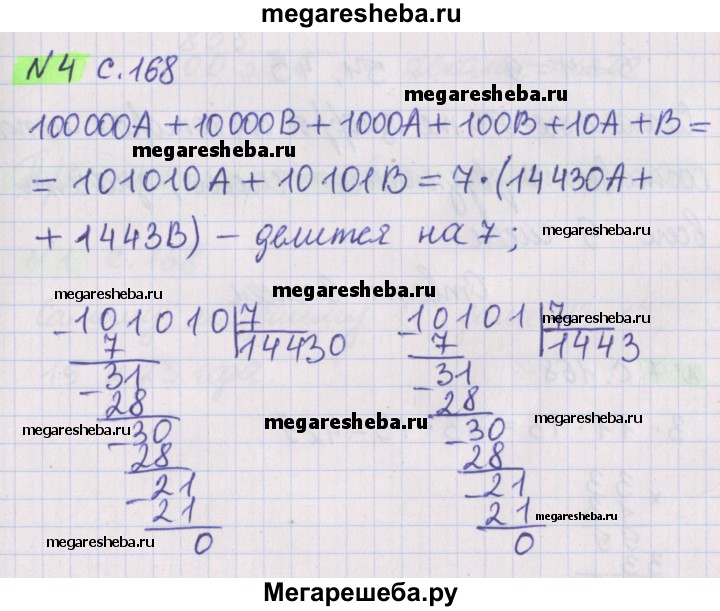 megaresheba.ru
№4 с.168
megaresheba.ru
100000А + 10000В + 1000А + 100В + 10А + В =
megaresheba.ru
= 101010А + 10101В = 7·(14430А +
+ 1443В) – делится на 7;
megaresheba.ru
megaresheba.ru
megaresheba.ru
- 101010 | 7
7
14430
- 31
28
- 30
28
- 21
21
0
- 10101 | 7
7
1443
- 31
28
- 30
28
- 21
21
0
megaresheba.ru
megaresheba.ru
megaresheba.ru
megaresheba.ru
megaresheba.ru
megaresheba.ru
Мегарешеба.ру